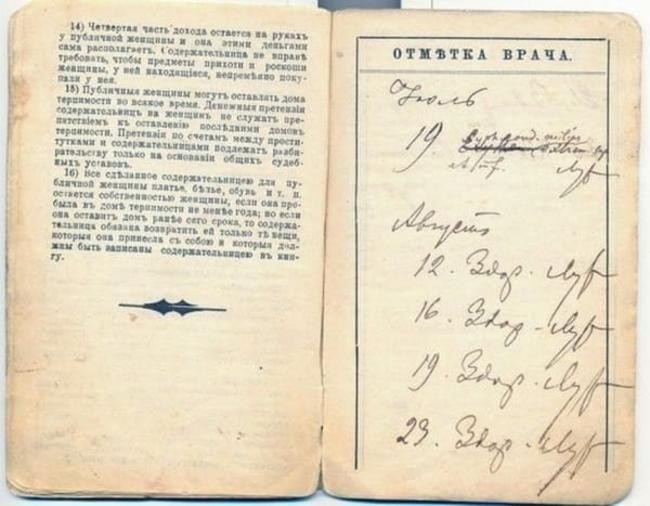 14) Четвертая часть дохода остается на руках
у публичной женщины и она этими деньгами
сама располагаетъ. Содержательница не вправѣ
требовать, чтобы предметы прихоти и роскоши
женщины, у ней находящіяся, непремѣнно поку-
пали у нея.
15) Публичныя женщины могутъ оставлять дома
терпимости во всякое время. Денежныя претензіи
содержательницъ на женщинъ не служатъ пре-
пятствіемъ къ оставленію послѣдними домовъ
терпимости. Претензіи по счетамъ между прости-
тутками и содержательницами подлежатъ разби-
рательству только на основаніи общихъ судеб-
ныхъ уставовъ.
16) Все сдѣланное содержательницею для пу-
бличной женщины платье, бѣлье, обувь и т. п.
остается собственностью женщины, если она про-
была въ домѣ терпимости не менѣе года; но если
она оставитъ домъ ранѣе сего срока, то содержа-
тельница обязана возвратить ей только тѣ вещи,
которыя она принесла съ собою и которыя дол-
жны быть записаны содержательницею въ кни-
гу.
ОТМѢТКА ВРАЧА.
Іюль
19
Августъ
12. Здор. -
16. Здор -
19. Здор. -
23. Здор -